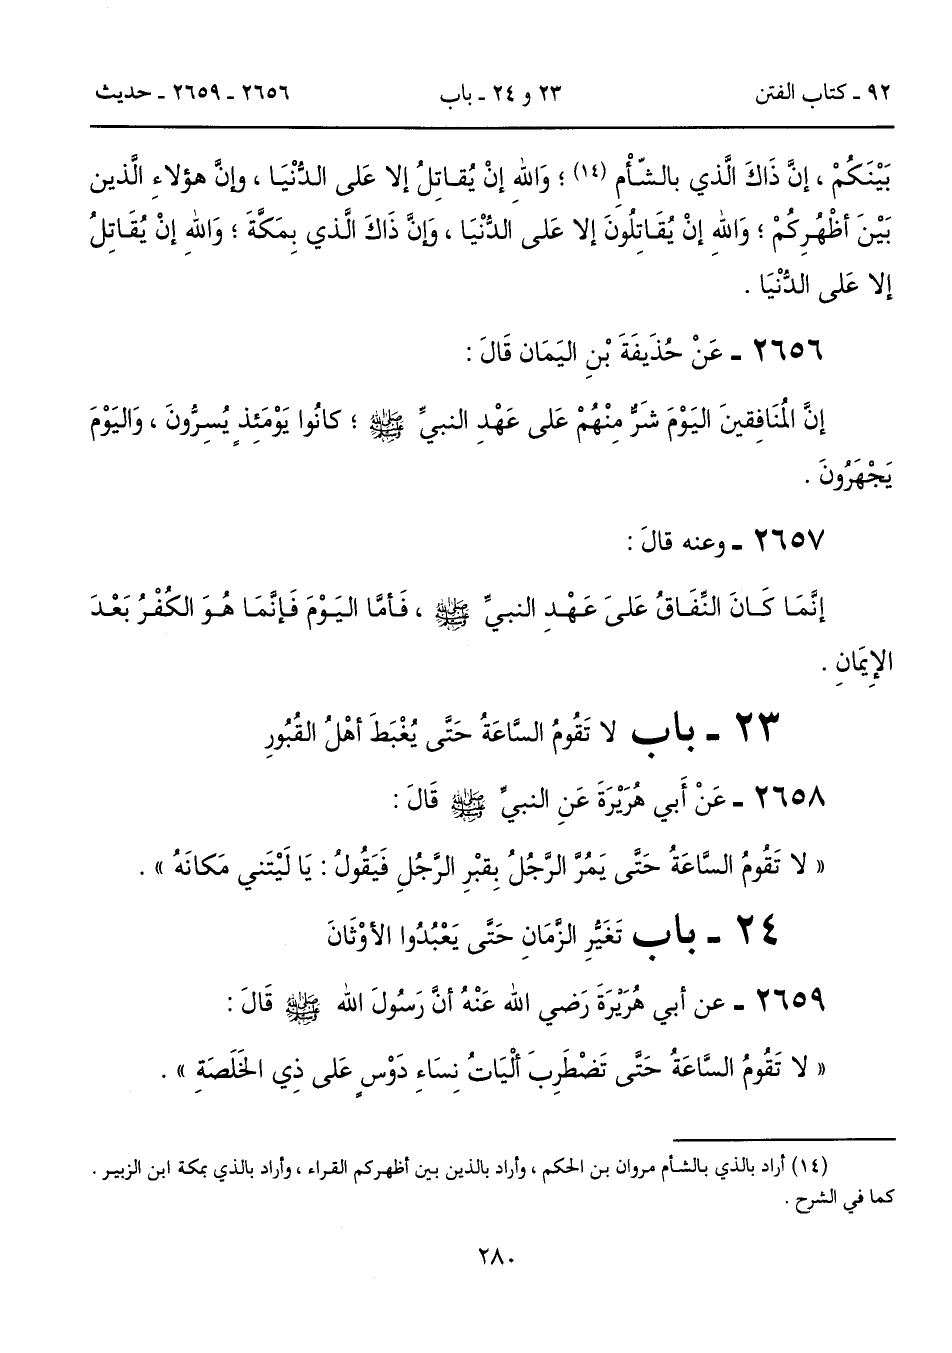 ٩٢ ـ كتاب الفتن ٢٣ و ٢٤ ـ باب ٢٦٥٦ ـ ٢٦٥٩ ـ حديث
بَيْنَكُمْ ، إنَّ ذَاكَ الَّذي بالشّأْم (١٤) ؛ وَاللهِ إنْ يُقـاتِلُ إلا عَلى الـدُّنْيَا ، وإنَّ هؤلاءِ الَّذين
بَيْنَ أظْهُرِكُمْ ؛ وَاللهِ إنْ يُقَاتِلُونَ إلا عَلى الدُّنْيَا ، وَإنَّ ذَاكَ الَّذي بِمَكَّةَ ؛ وَاللهِ إنْ يُقَاتِلُ
إلا عَلى الدُّنْيَا .
٢٦٥٦ ـ عَنْ حُذَيفَةَ بْنِ اليَمَان قَالَ :
إنَّ الْمُنَافِقينَ اليَوْمَ شَرٌّ مِنْهُمْ عَلى عَهْدِ النبيِّ ﷺ ؛ كانُوا يَوْمَئِذٍ يُسِرُّونَ ، وَاليَوْمَ
يَجْهَرُونَ .
٢٦٥٧ ـ وعنه قالَ :
إنَّمَا كَـانَ النِّفَاقُ عَلىَ عَهْدِ النبيِّ ﷺ ، فَـأمَّا اليَـوْمَ فَـإنَّمَا هُـوَ الكُفْرُ بَعْـدَ
الإِيمَانِ .
٢٣ ـ باب لا تَقُومُ السَّاعَةُ حَتَّى يُغْبَطَ أهْلُ القُبُورِ
٢٦٥٨ ـ عَنْ أَبي هُرَيْرَةَ عَنِ النبيِّ ﷺ قَالَ :
« لا تَقُومُ السَّاعَةُ حَتَّى يَمُرَّ الرَّجُلُ بِقبْرِ الرَّجُلِ فَيَقُولُ : يَا لَيْتَني مَكانَهُ » .
٢٤ ـ باب تَغَيُّرِ الزَّمَانِ حَتَّى يَعْبُدُوا الأوْثَانَ
٢٦٥٩ ـ عن أبي هُرَيْرَةَ رَضي الله عَنْهُ أنَّ رَسُولَ الله ﷺ قَالَ :
« لا تَقُومُ السَّاعَةُ حَتَّى تَضْطَرِبَ ألْيَاتُ نِسَاءِ دَوْسٍ عَلى ذِي الخَلَصَةِ » .
(١٤) أراد بالذي بالشأم مروان بن الحكم ، وأراد بالذين بين أظهركم القراء ، وأراد بالذي بمكة ابن الزبير .
كما في الشرح .
٢٨٠